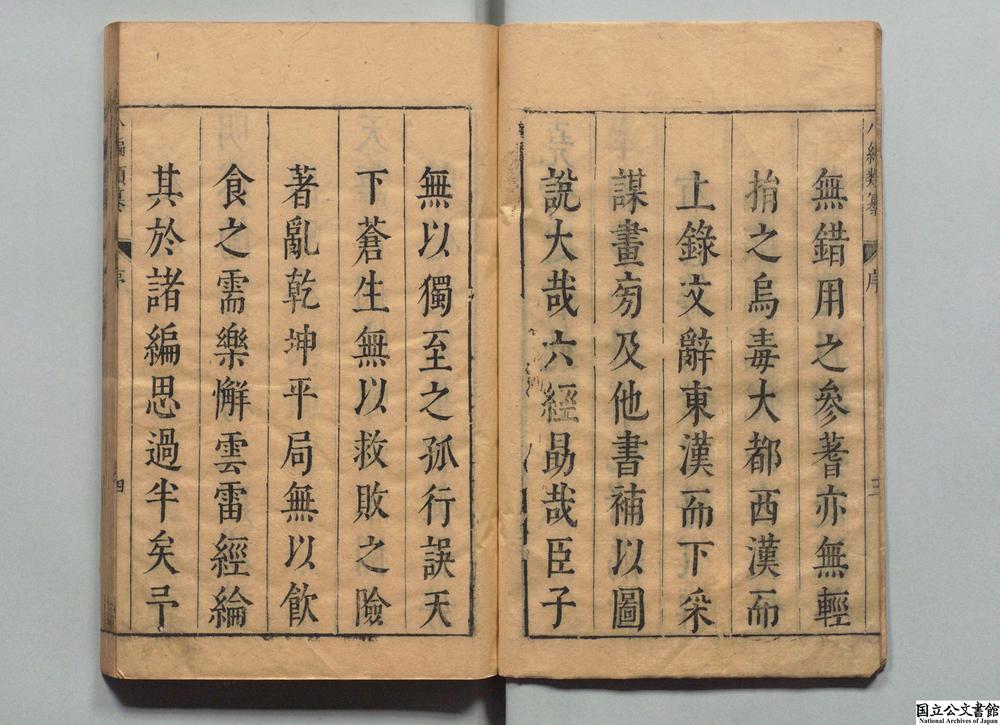 八編類纂 序 三
無錯用之參蓍亦無輕
捐之烏毒大都西漢而
上錄文辭東漢而下采
謀畫旁及他書補以圖
說大哉六經勗哉臣子
無以獨至之孤行誤天
下蒼生無以救敗之險
著亂乾坤平局無以飲
食之需樂懈雲雷經綸
其於諸編思過半矣予
八編類纂 序 四
国立公文書館
National Archives of Japan